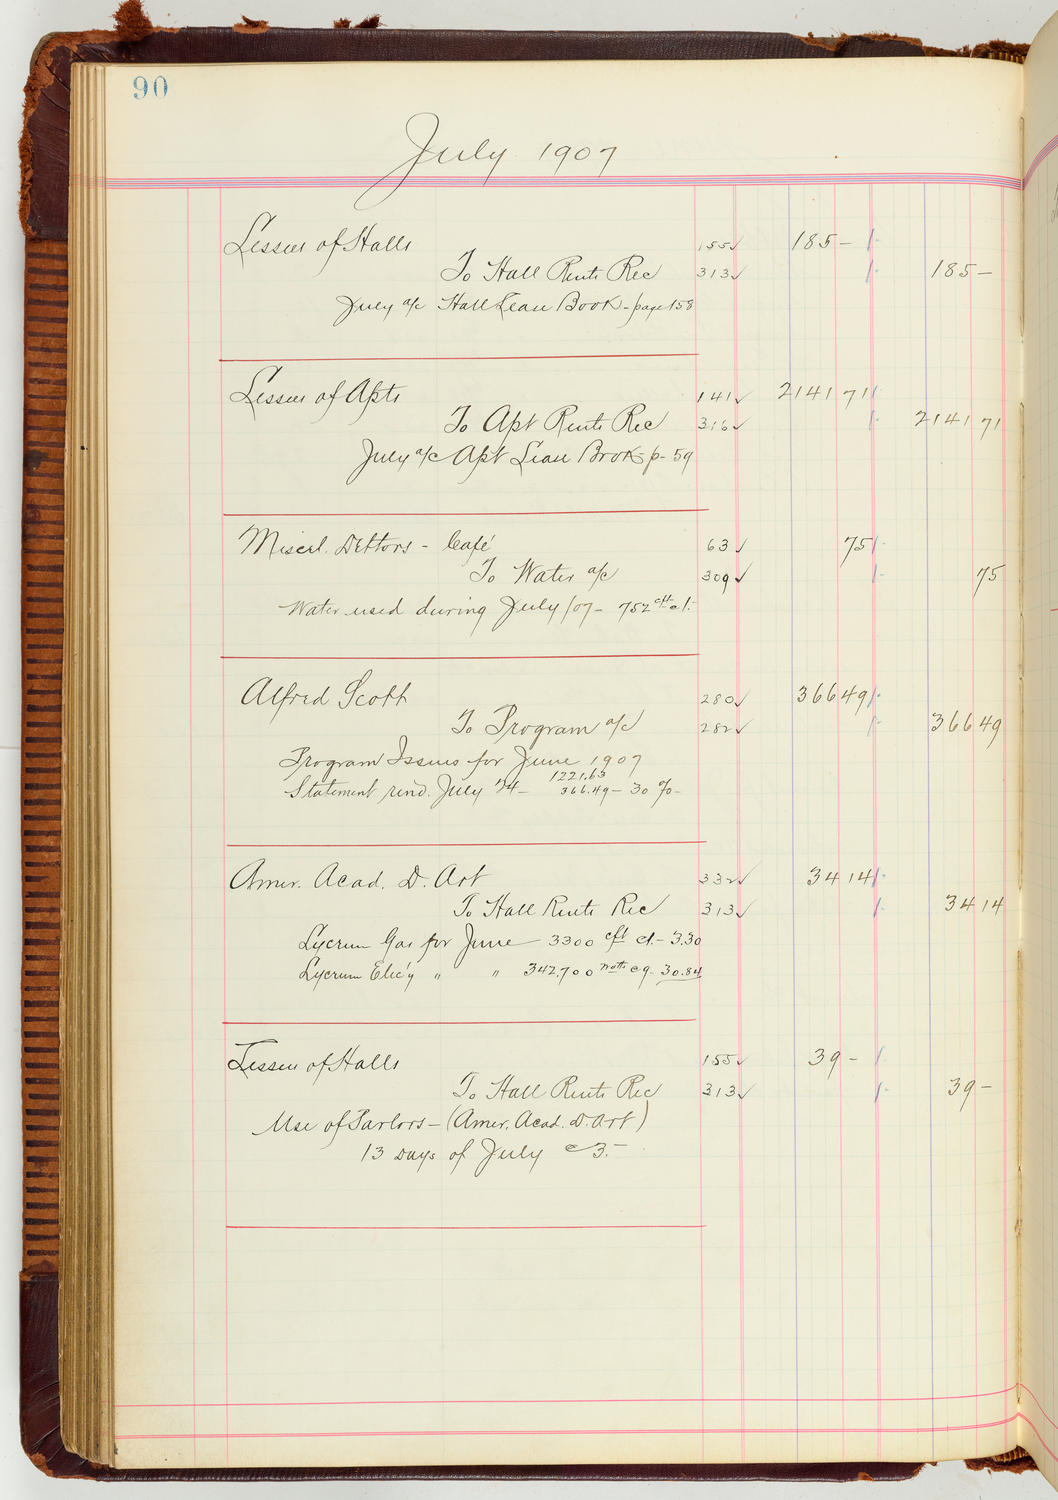 90
July 1907
Lessees of Halls 155✓ 185 –
To Hall Rents Rec 313✓ 185 –
July a/c Hall Lease Book – page 158
Lessees of Apts 141✓ 2141 71
To Apt Rents Rec 316✓ 2141 71
July a/c Apt Lease Book – p – 59
Miscel. Debtors – Café 63✓ 75
To Water a/c 309✓ 75
Water used during July /07 – 752 cft @ 1.
Alfred Scott 280✓ 366 49
To Program a/c 282✓ 366 49
Program Issues for June 1907
Statement rend. July 24 – 1221.63
366.49 – 30 % –
Amer. Acad. D. Art 332✓ 34 14
To Hall Rents Rec 313✓ 34 14
Lyceum Gas for June – 3300 cft @ 1. – 3.30
Lyceum Elec'y " " 342.700 watts @ 9. 30.84
Lessees of Halls 155✓ 39 –
To Hall Rents Rec 313✓ 39 –
Use of Parlors – (Amer. Acad. D. Art)
13 Days of July @ 3. –